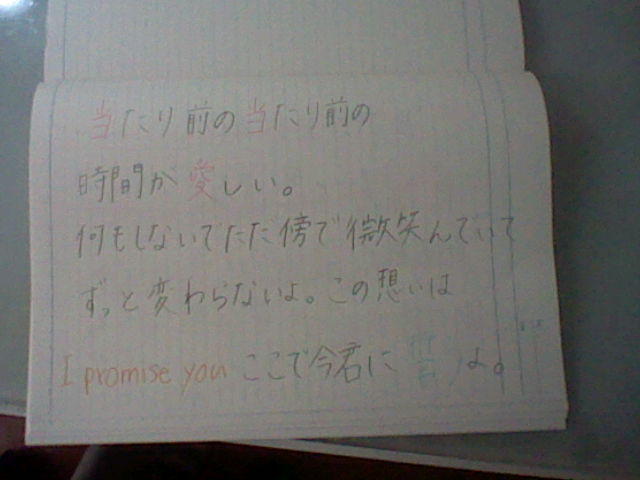 当たり前の当たり前の
時間が愛しい。
何もしないでただ傍で微笑んでいて
ずっと変わらないよ。この想いは
I promise you ここで今君に誓うよ。